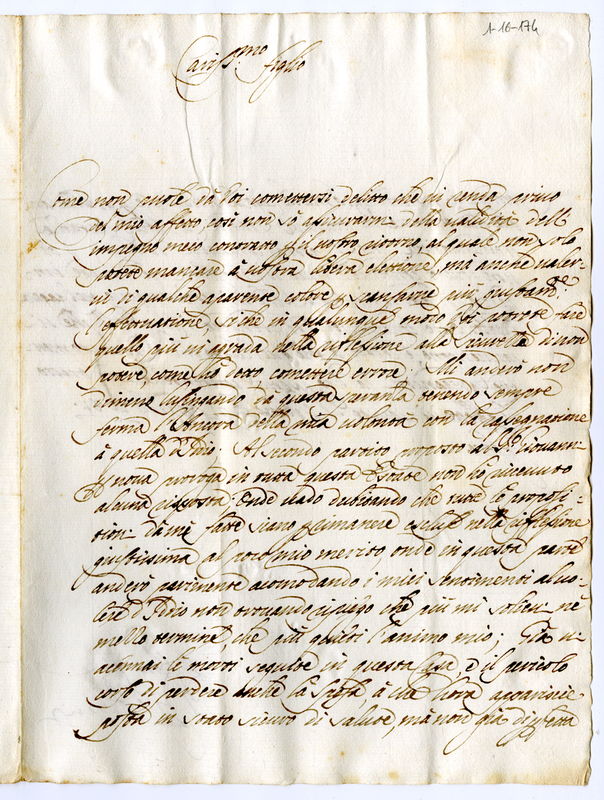 1-16-174
Cariss.mo figlio
Come non puole da Voi comettersi delitto che vi renda privo
del mio affetto, così non sò assicurarmi della validità dell
impegno meco contratto p il vostro ritorno, al quale non solo
potete mancare à vostra libera elettione, mà anche valer-
vi di qualche aparente colore p scansarne più giustam.te
l'effettuatione, si che in qualunque modo Voi potrete fare
quello più vi agrada della riflessione alla sicurezza di non
potere, come hò detto, comettere errore. Mi anderò non
dimeno lusingando da questa speranza tenendo sempre
ferma l'Ancora della mia volontà con la rasegnatione
à quella d'Idio. Al secondo partito proposto al Sig.r Giovanni
p nova proroga in tutta questa Estate non hò ricevuto
alcuna risposta. Onde vado dubitando che tutte le proposi-
tioni da me fatte siano p rimanere escluse nella riflessione
giustissima al poco mio merito, onde in questa parte
anderò parimente acomodando i miei sentimenti al vo-
lere d'Idio non trovando ripiego che più mi sollievi nè
mezzo termine, che più quieti l'animo mio; Già v'
acennai le morti seguite in questa Casa, e il pericolo
corso di perdere anche la Sposa, à che hora apparisce
posta in stato sicuro di salute, mà non già di perfetta